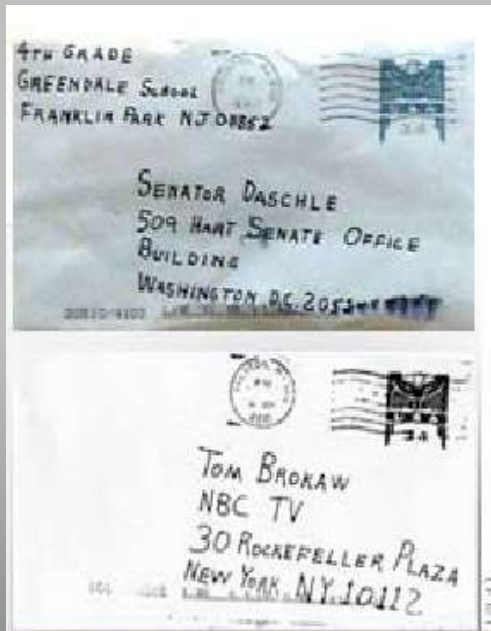 4TH GRADE
GREENDALE SCHOOL
FRANKLIN PARK NJ 08852
SENATOR DASCHLE
509 HART SENATE OFFICE
BUILDING
WASHINGTON D.C. 205
34
TOM BROKAW
NBC TV
30 ROCKEFELLER PLAZA
NEW YORK NY 10112
34